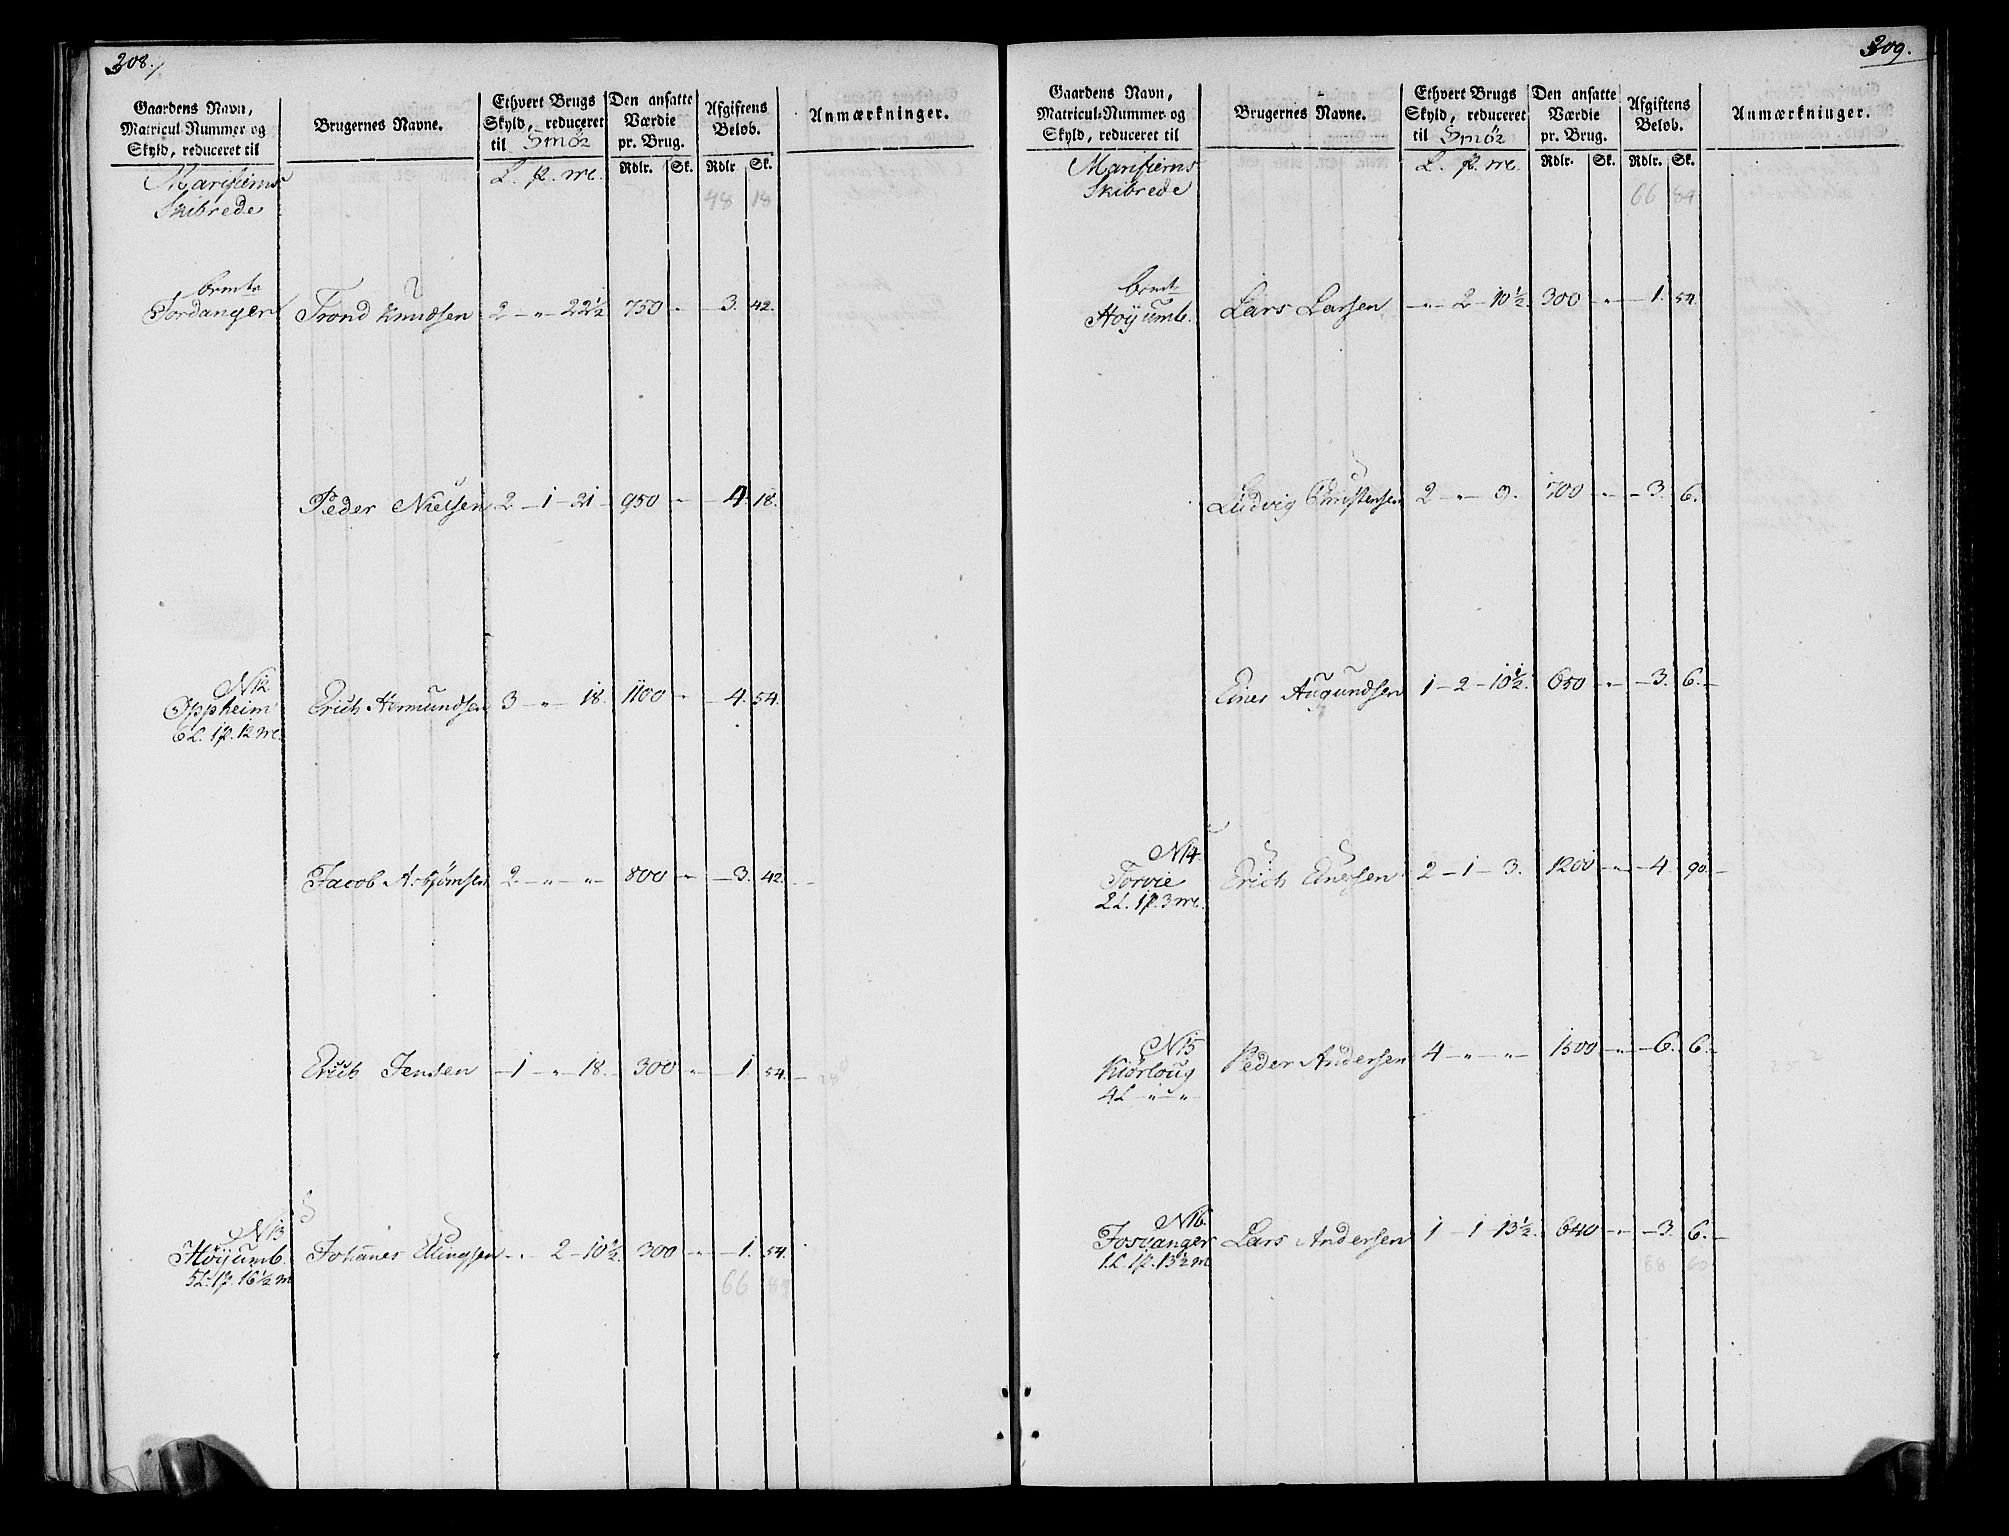 208.
Gaardens Navn,
Matricul-Nummer og
Skyld, reduceret til
Brugernes Navne.
Ethvert Brugs
Skyld, reduceret
til Smör
Den ansatte
Værdie
pr. Brug.
Afgiftens
Beløb.
Anmærkninger.
Rdlr. Sk. Rdlr Sk.
Marifierns
Skibrede
L. p. mc.
48 18
bemte
Fordanger Trond Knudsen 2 - " - 22½ 750 - " - 3. 42.
Peder Nielsen 2 - 1 - 21 - 950 - " - 4. 18.
N12
Oppheim
6 L. 1 p. 12 mc.
Erich Armundsen 3 - " - 18. 1100 - " - 4. 54.
Jacob Asbjørnsen 2. - " - " - 800 - " - 3. 42.
Erich Jensen - 1 - " - 18. 300 - " - 1. 54.
N13
Höyumb.
5 L. 1 p. 16½ m
Johannes Ellingsen - " - 2 - 10½. 300 - " - 1. 54.
66 84
209.
Gaardens Navn,
Matricul-Nummer og
Skyld, reduceret til
Brugernes Navne.
Ethvert Brugs
Skyld, reduceret
til Smör
Den ansatte
Værdie
pr. Brug.
Afgiftens
Beløb.
Anmærkninger.
Rdlr. Sk. Rdlr. Sk.
Marifierns
Skibrede
L. p. mc.
66 84
bemte
Höyumb. Lars Larsen - " - 2 - 10½. 300 - " - 1. 54.
Ludvig Christensen 2 - " - 9. 700 - " - 3. 6.
Einer Augundsen 1 - 2 - 10½. 650 - " - 3. 6.
N14
Torvie
2 L. 1 p. 3 mc.
Erich Einersen 2 - 1 - 3. 1200 - " - 4. 90.
N15
Kiörloug
4 L - " - " -
Peder Andersen 4 - " - " - 1500 - " - 6. 6.
N16.
Fosvanger
1 L. 1 p. 13½ m
Lars Andersen 1 - 1 - 13½. 640 - " - 3. 6.
88 60